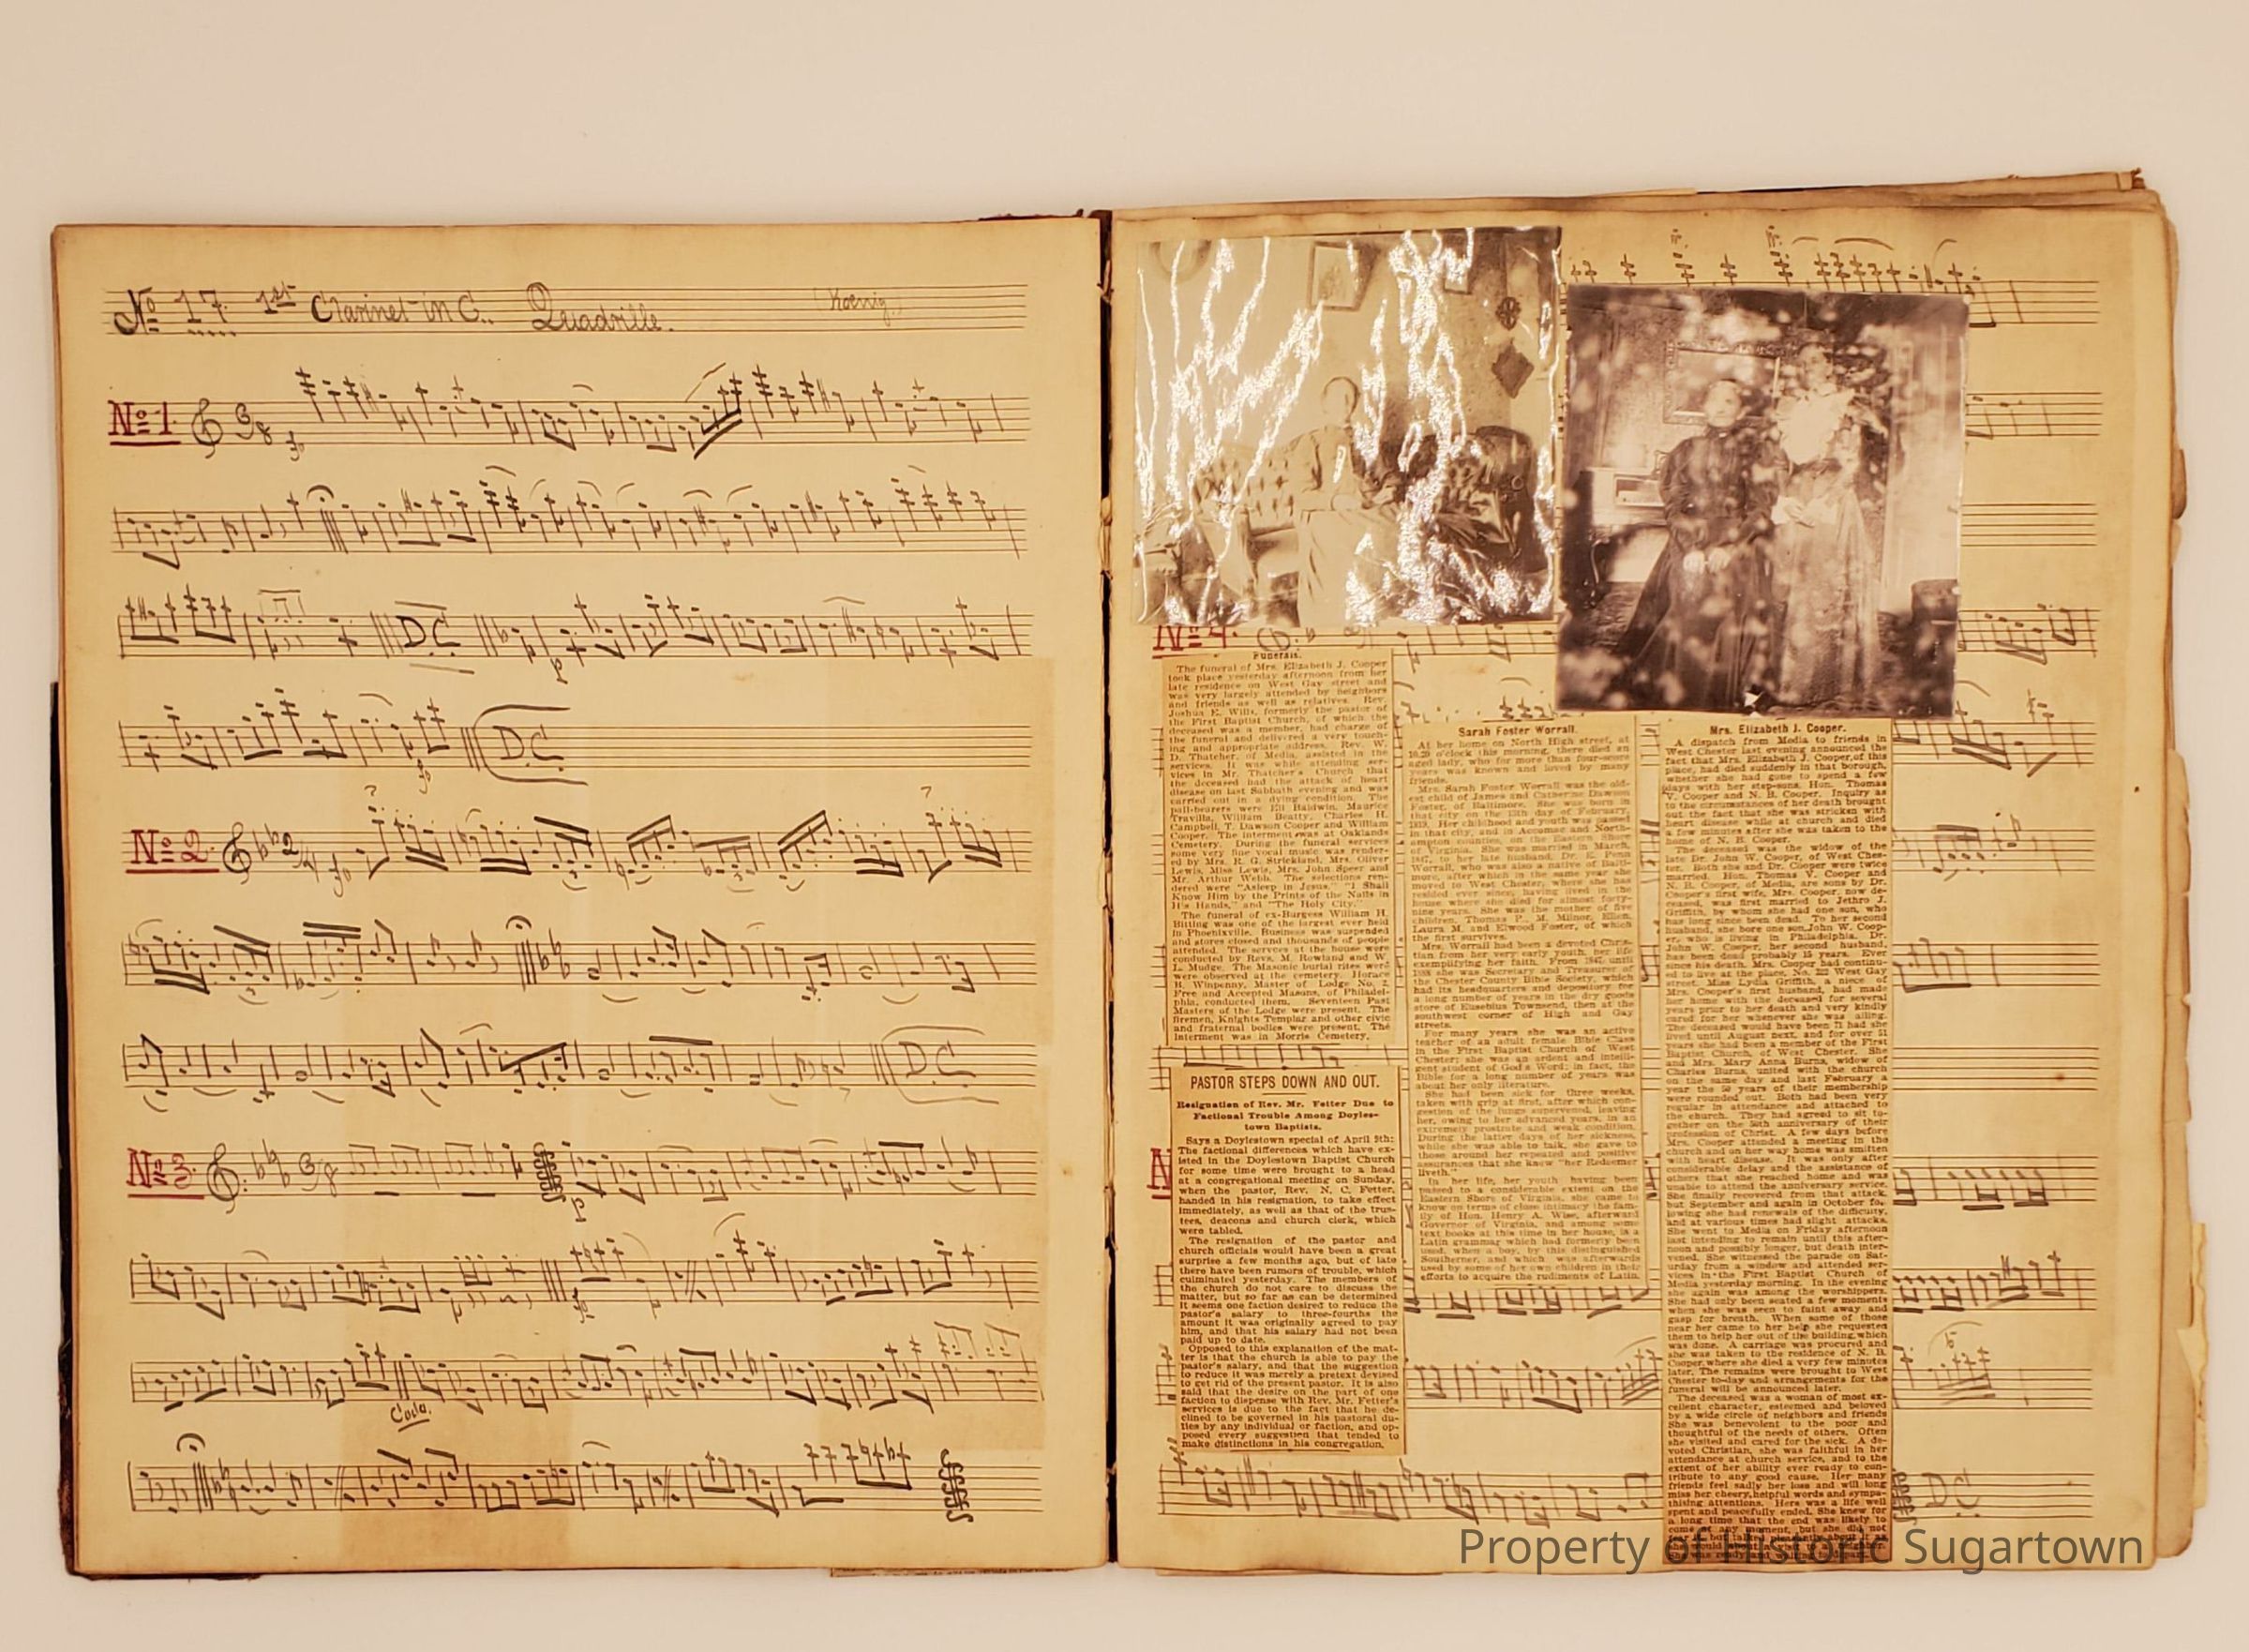 No 17. 1st Clarinet in C. Quadrille. (Koenig.)
No 1
D.C.
D.C.
No 2.
D.C.
No 3.
Coda.
No 4.
Funerals.
The funeral of Mrs. Elizabeth J. Cooper
took place yesterday afternoon from her
late residence on West Gay street and
was very largely attended by neighbors
and friends as well as relatives. Rev.
Joshua E. Wills, formerly the pastor of
the First Baptist Church, of which the
deceased was a member, had charge of
the funeral and delivered a very touch-
ing and appropriate address. Rev. W.
D. Thatcher, of Media, assisted in the
services. It was while attending ser-
vices in Mr. Thatcher's Church that
the deceased had the attack of heart
disease on last Sabbath evening and was
carried out in a dying condition. The
pall-bearers were Eli Baldwin, Maurice
Travilla, William Beatty, Charles H.
Campbell, T. Dawson Cooper and William
Cooper. The interment was at Oaklands
Cemetery. During the funeral services
some very fine vocal music was render-
ed by Mrs. R. G. Strickland, Mrs. Oliver
Lewis, Miss Lewis, Mrs. John Speer and
Mr. Arthur Webb. The selections ren-
dered were "Asleep in Jesus," "I Shall
Know Him by the Prints of the Nails in
His Hands," and "The Holy City."
The funeral of ex-Burgess William H.
Bitting was one of the largest ever held
in Phoenixville. Business was suspended
and stores closed and thousands of people
attended. The services at the house were
conducted by Revs. M. Rowland and W.
L. Mudge. The Masonic burial rites were
were observed at the cemetery. Horace
B. Winpenny, Master of Lodge No. 2,
Free and Accepted Masons, of Philadel-
phia, conducted them. Seventeen Past
Masters of the Lodge were present. The
firemen, Knights Templar and other civic
and fraternal bodies were present. The
interment was in Morris Cemetery.
PASTOR STEPS DOWN AND OUT.
Resignation of Rev. Mr. Fetter Due to
Factional Trouble Among Doyles-
town Baptists.
Says a Doylestown special of April 9th:
The factional differences which have ex-
isted in the Doylestown Baptist Church
for some time were brought to a head
at a congregational meeting on Sunday,
when the pastor, Rev. N. C. Fetter,
handed in his resignation, to take effect
immediately, as well as that of the trus-
tees, deacons and church clerk, which
were tabled.
The resignation of the pastor and
church officials would have been a great
surprise a few months ago, but of late
there have been rumors of trouble, which
culminated yesterday. The members of
the church do not care to discuss the
matter, but so far as can be determined
it seems one faction desired to reduce the
pastor's salary to three-fourths the
amount it was originally agreed to pay
him, and that his salary had not been
paid up to date.
Opposed to this explanation of the mat-
ter is that the church is able to pay the
pastor's salary, and that the suggestion
to reduce it was merely a pretext devised
to get rid of the present pastor. It is also
said that the desire on the part of one
faction to dispense with Rev. Mr. Fetter's
services is due to the fact that he de-
clined to be governed in his pastoral du-
ties by any individual or faction, and op-
posed every suggestion that tended to
make distinctions in his congregation.
Sarah Foster Worrall.
At her home on North High street, at
10.20 o'clock this morning, there died an
aged lady, who for more than four-score
years was known and loved by many
friends.
Mrs. Sarah Foster Worrall was the old-
est child of James and Catherine Dawson
Foster, of Baltimore. She was born in
that city on the 13th day of February,
1819. Her childhood and youth was passed
in that city, and in Accomac and North-
ampton counties, on the Eastern Shore
of Virginia. She was married in March,
1847, to her late husband, Dr. E. Penn
Worrall, who was also a native of Balti-
more, after which in the same year she
moved to West Chester, where she has
resided ever since, having lived in the
house where she died for almost forty-
nine years. She was the mother of five
children, Thomas P., M. Milnor, Ellen,
Laura M. and Elwood Foster, of which
the first survives.
Mrs. Worrall had been a devoted Chris-
tian from her very early youth, her life
exemplifying her faith. From 1847 until
1888 she was Secretary and Treasurer of
the Chester County Bible Society, which
had its headquarters and depository for
a long number of years in the dry goods
store of Eusebius Townsend, then at the
southwest corner of High and Gay
streets.
For many years she was an active
teacher of an adult female Bible Class
in the First Baptist Church of West
Chester; she was an ardent and intelli-
gent student of God's Word; in fact, the
Bible for a long number of years was
about her only literature.
She had been sick for three weeks,
taken with grip at first, after which con-
gestion of the lungs supervened, leaving
her, owing to her advanced years, in an
extremely prostrate and weak condition.
During the latter days of her sickness,
while she was able to talk, she gave to
those around her repeated and positive
assurances that she knew "her Redeemer
liveth."
In her life, her youth having been
passed to a considerable extent on the
Eastern Shore of Virginia, she came to
know on terms of close intimacy the fam-
ily of Hon. Henry A. Wise, afterward
Governor of Virginia, and among some
text books at this time in her house, is a
Latin grammar which had formerly been
used, when a boy, by this distinguished
Southerner, and which was afterwards
used by some of her own children in their
efforts to acquire the rudiments of Latin.
Mrs. Elizabeth J. Cooper.
A dispatch from Media to friends in
West Chester last evening announced the
fact that Mrs. Elizabeth J. Cooper, of this
place, had died suddenly in that borough,
whether she had gone to spend a few
days with her step-sons, Hon. Thomas
V. Cooper and N. B. Cooper. Inquiry as
to the circumstances of her death brought
out the fact that she was stricken with
heart disease while at church and died
a few minutes after she was taken to the
home of N. B. Cooper.
The deceased was the widow of the
late Dr. John W. Cooper, of West Ches-
ter. Both she and Dr. Cooper were twice
married. Hon. Thomas V. Cooper and
N. B. Cooper, of Media, are sons by Dr.
Cooper's first wife. Mrs. Cooper, now de-
ceased, was first married to Jethro J.
Griffith, by whom she had one son, who
has long since been dead. To her second
husband, she bore one son, John W. Coop-
er, who is living in Philadelphia. Dr.
John W. Cooper, her second husband,
has been dead probably 15 years. Ever
since his death, Mrs. Cooper had continu-
ed to live at the place, No. 222 West Gay
street. Miss Lydia Griffith, a niece of
Mrs. Cooper's first husband, had made
her home with the deceased for several
years prior to her death and very kindly
cared for her whenever she was ailing.
The deceased would have been 71 had she
lived until August next, and for over 51
years she had been a member of the First
Baptist Church, of West Chester. She
and Mrs. Mary Anna Burns, widow of
Charles Burns, united with the church
on the same day and last February a
year the 50 years of their membership
were rounded out. Both had been very
regular in attendance and attached to
the church. They had agreed to sit to-
gether on the 50th anniversary of their
profession of Christ. A few days before
Mrs. Cooper attended a meeting in the
church and on her way home was smitten
with heart disease. It was only after
considerable delay and the assistance of
others that she reached home and was
unable to attend the anniversary service.
She finally recovered from that attack,
but September and again in October fol-
lowing she had renewals of the difficulty,
and at various times had slight attacks.
She went to Media on Friday afternoon
last intending to remain until this after-
noon and possibly longer, but death inter-
vened. She witnessed the parade on Sat-
urday from a window and attended ser-
vices in the First Baptist Church of
Media yesterday morning. In the evening
she again was among the worshippers.
She had only been seated a few moments
when she was seen to faint away and
gasp for breath. When some of those
near her came to her help she requested
them to help her out of the building, which
was done. A carriage was procured and
she was taken to the residence of N. B.
Cooper, where she died a very few minutes
later. The remains were brought to West
Chester to-day and arrangements for the
funeral will be announced later.
The deceased was a woman of most ex-
cellent character, esteemed and beloved
by a wide circle of neighbors and friends
She was benevolent to the poor and
thoughtful of the needs of others. Often
she visited and cared for the sick. A de-
voted Christian, she was faithful in her
attendance at church service, and to the
extent of her ability ever ready to con-
tribute to any good cause. Her many
friends feel sadly her loss and will long
miss her cheery, helpful words and sympa-
thising attentions. Hers was a life well
spent and peacefully ended. She knew for
a long time that the end was likely to
come at any moment, but she did not
D.C.
Property of Historic Sugartown